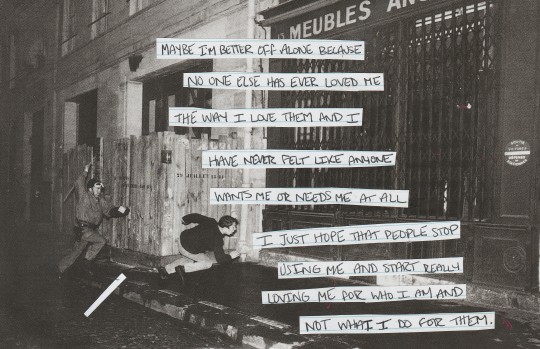 MEUBLES AN
MAYBE I'M BETTER OFF ALONE BECAUSE
NO ONE ELSE HAS EVER LOVED ME
THE WAY I LOVE THEM AND I
HAVE NEVER FELT LIKE ANYONE
WANTS ME OR NEEDS ME AT ALL
I JUST HOPE THAT PEOPLE STOP
USING ME AND START REALLY
LOVING ME FOR WHO I AM AND
NOT WHAT I DO FOR THEM.